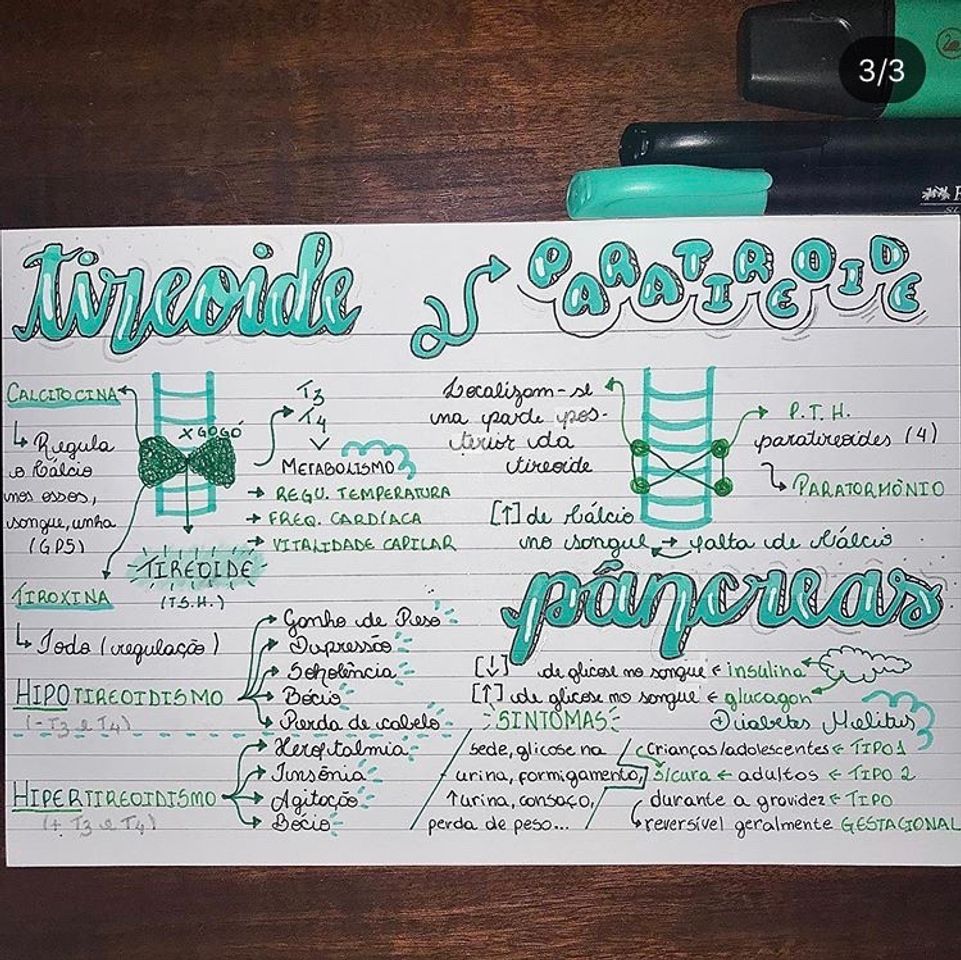 3/3
tireoide
PARATIREOIDE
CALCITOCINA
↳ Regula
o Cálcio
nos ossos,
sangue, unha
(GPS)
X GOGÓ
T3
T4
METABOLISMO
→ REGU. TEMPERATURA
→ FREQ. CARDÍACA
→ VITALIDADE CAPILAR
TIREOIDE
(T.S.H.)
TIROXINA
↳ Iodo (regulação)
HIPOTIREOIDISMO
(-T3 e T4)
Ganho de Peso
Depressão
Sonolência
Bócio
Perda de cabelo
HIPERTIREOIDISMO
(+ T3 e T4)
Insônia
Agitação
Bócio
Localizam-se
na parte pos-
terior da
tireoide
P.T.H.
paratireoides (4)
↳ PARATORMÔNIO
[↑] de Cálcio
no sangue → falta de Cálcio
pâncreas
[↓] de glicose no sangue ← insulina
[↑] de glicose no sangue ← glucagon
SINTOMAS
sede, glicose na
urina, formigamento,
↑urina, cansaço,
perda de peso...
Diabetes Mellitus
crianças/adolescentes ← TIPO 1
s/cura ← adultos ← TIPO 2
durante a gravidez ← TIPO
↳ reversível geralmente GESTACIONAL